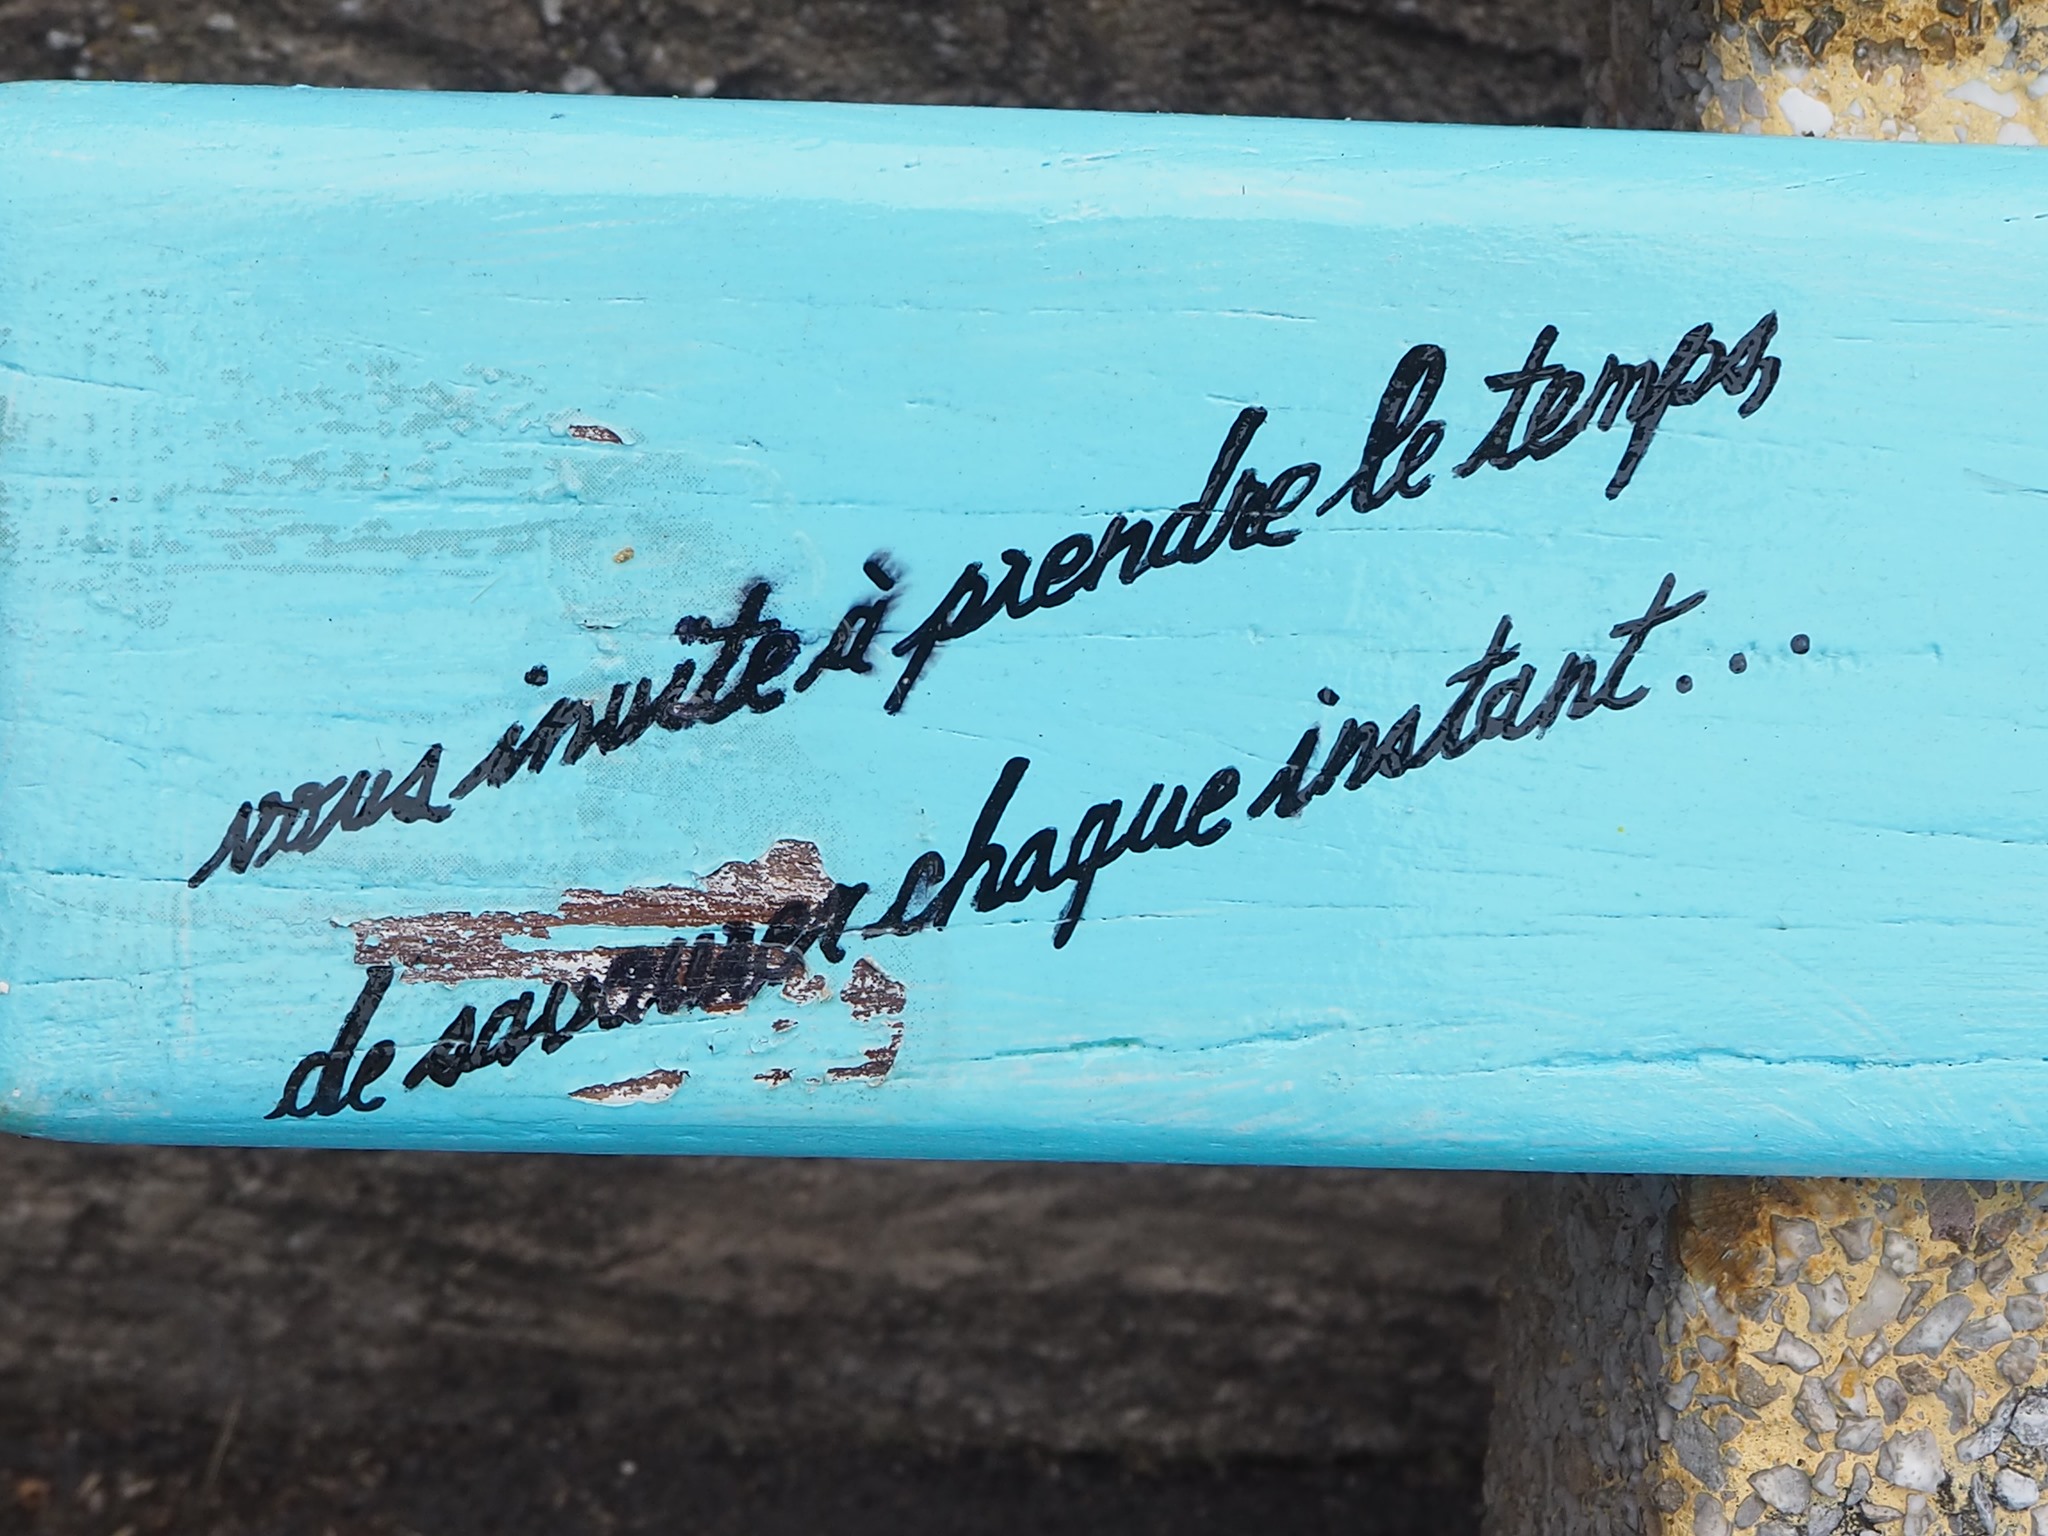 vous invite à prendre le temps,
de savourer chaque instant...